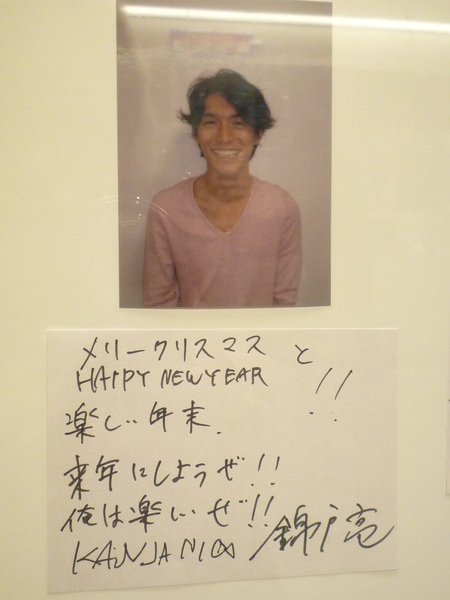 メリークリスマス と
HAPPY NEW YEAR !!
楽しい年末.
来年にしようぜ!!
俺は楽しいぜ!!
KANJANI∞ 錦戸亮